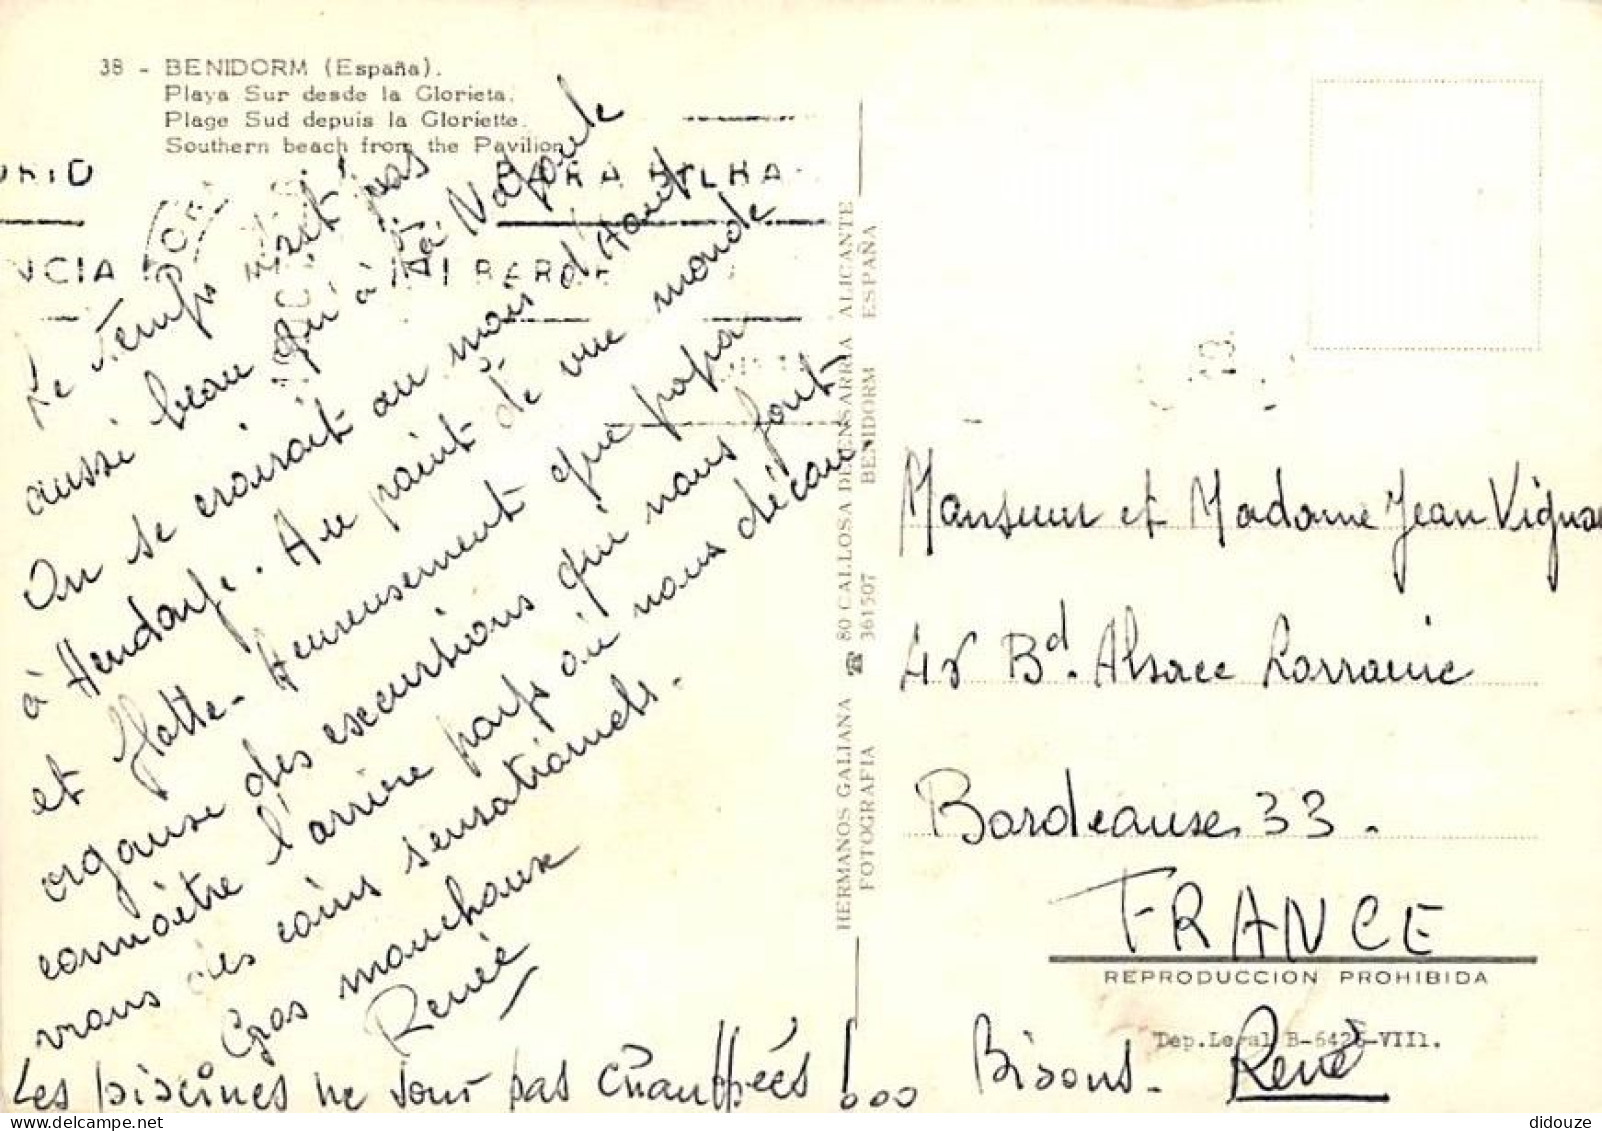 38 - BENIDORM (España).
Playa Sur desde la Glorieta.
Plage Sud depuis la Gloriette.
Southern beach from the Pavilion
Le temps n'est pas
aussi beau qu'à la Napoule
On se croirait au mois d'Août
à Hendaye. Au point de vue monde
et flotte. Heureusement que papa
organise des excursions qui nous font
connaître l'arrière pays où nous découvrons
vrons des coins sensationnels.
Gros mouchoux
Renée
Les piscines ne sont pas chauffées !...
HERMANOS GALIANA ☎ 80 CALLOSA DE ENSARRIA ALICANTE
FOTOGRAFIA 361507 BENIDORM ESPAÑA
23.
Monsieur et Madame Jean
45 Bd. Alsace Lorraine
Bordeauxe 33.
FRANCE
REPRODUCCION PROHIBIDA
Dep. Legal B-642-VIII.
Bisous. René
didouze